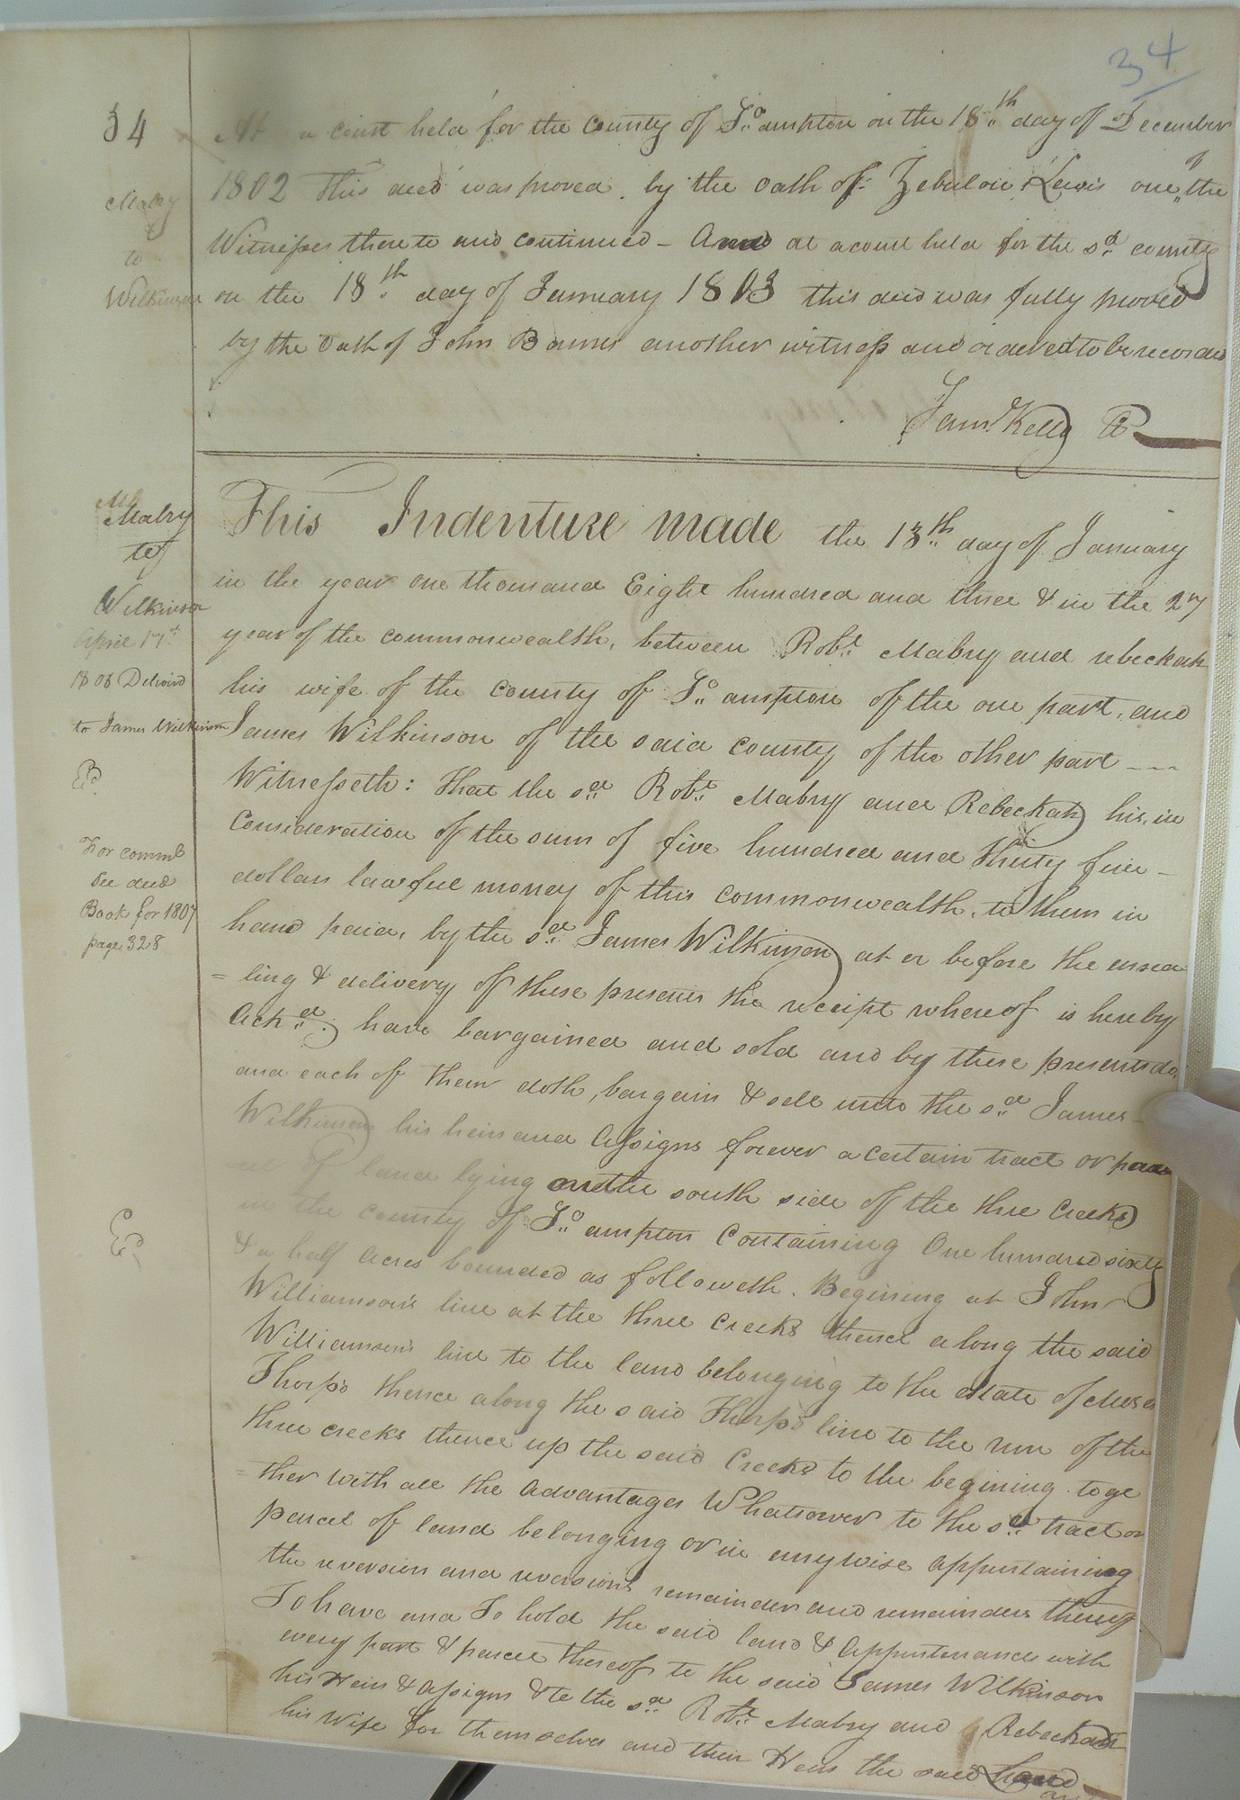 34
34
At a court held for the county of So.ampton on the 18th day of December
1802 This deed was proved by the oath of Zebulon Lewis one of the
Witnesses thereto and continued – And at a court held for the sd county
on the 18th day of January 1803 this deed was fully proved
by the oath of John Barnes another witness and ordered to be recorded
Saml Kelly
Mabry
to
Wilkinson
This Indenture made the 13th day of January
in the year one thousand Eight hundred and three & in the 27
year of the commonwealth, between Robt Mabry and rebeckah
his wife of the county of So.ampton of the one part, and
James Wilkinson of the said county of the other part
Witnesseth: That the sd Robt Mabry and Rebeckah his, in
Consideration of the sum of five hundred and Thirty five
dollars lawful money of this commonwealth, to them in
hand paid, by the sd James Wilkinson at or before the ensea
= ling & delivery of these presents the receipt whereof is hereby
Ackd. have bargained and sold and by these presents do
and each of them doth, bargain & sell unto the sd James
Wilkinson his heirs and Assigns forever a certain tract or par
of land lying on the south side of the three Creeks
in the county of So.ampton Containing One hundred sixty
& a half Acres bounded as followeth. Begining at John
Williamson's line at the three Creeks thence along the said
Williamson's line to the land belonging to the estate of
Thorps thence along the said Thorp's line to the run of the
three creeks thence up the said Creeks to the begining. toge
= ther with all the advantages Whatsoever to the sd tract or
parcel of land belonging or in anywise appertaining
the reversion and reversions remainder and remainders thereof
To have and To hold the said land & Appertenances with
every part & parcel thereof to the said James Wilkinson
his Heirs & Assigns & to the sd Robt Mabry and Rebeckah
his Wife for themselves and their Heirs the said land
Mabry
to
Wilkinson
April 17th
1808 Delivered
to James Wilkinson
For comms
See deed
Book for 1807
page 328